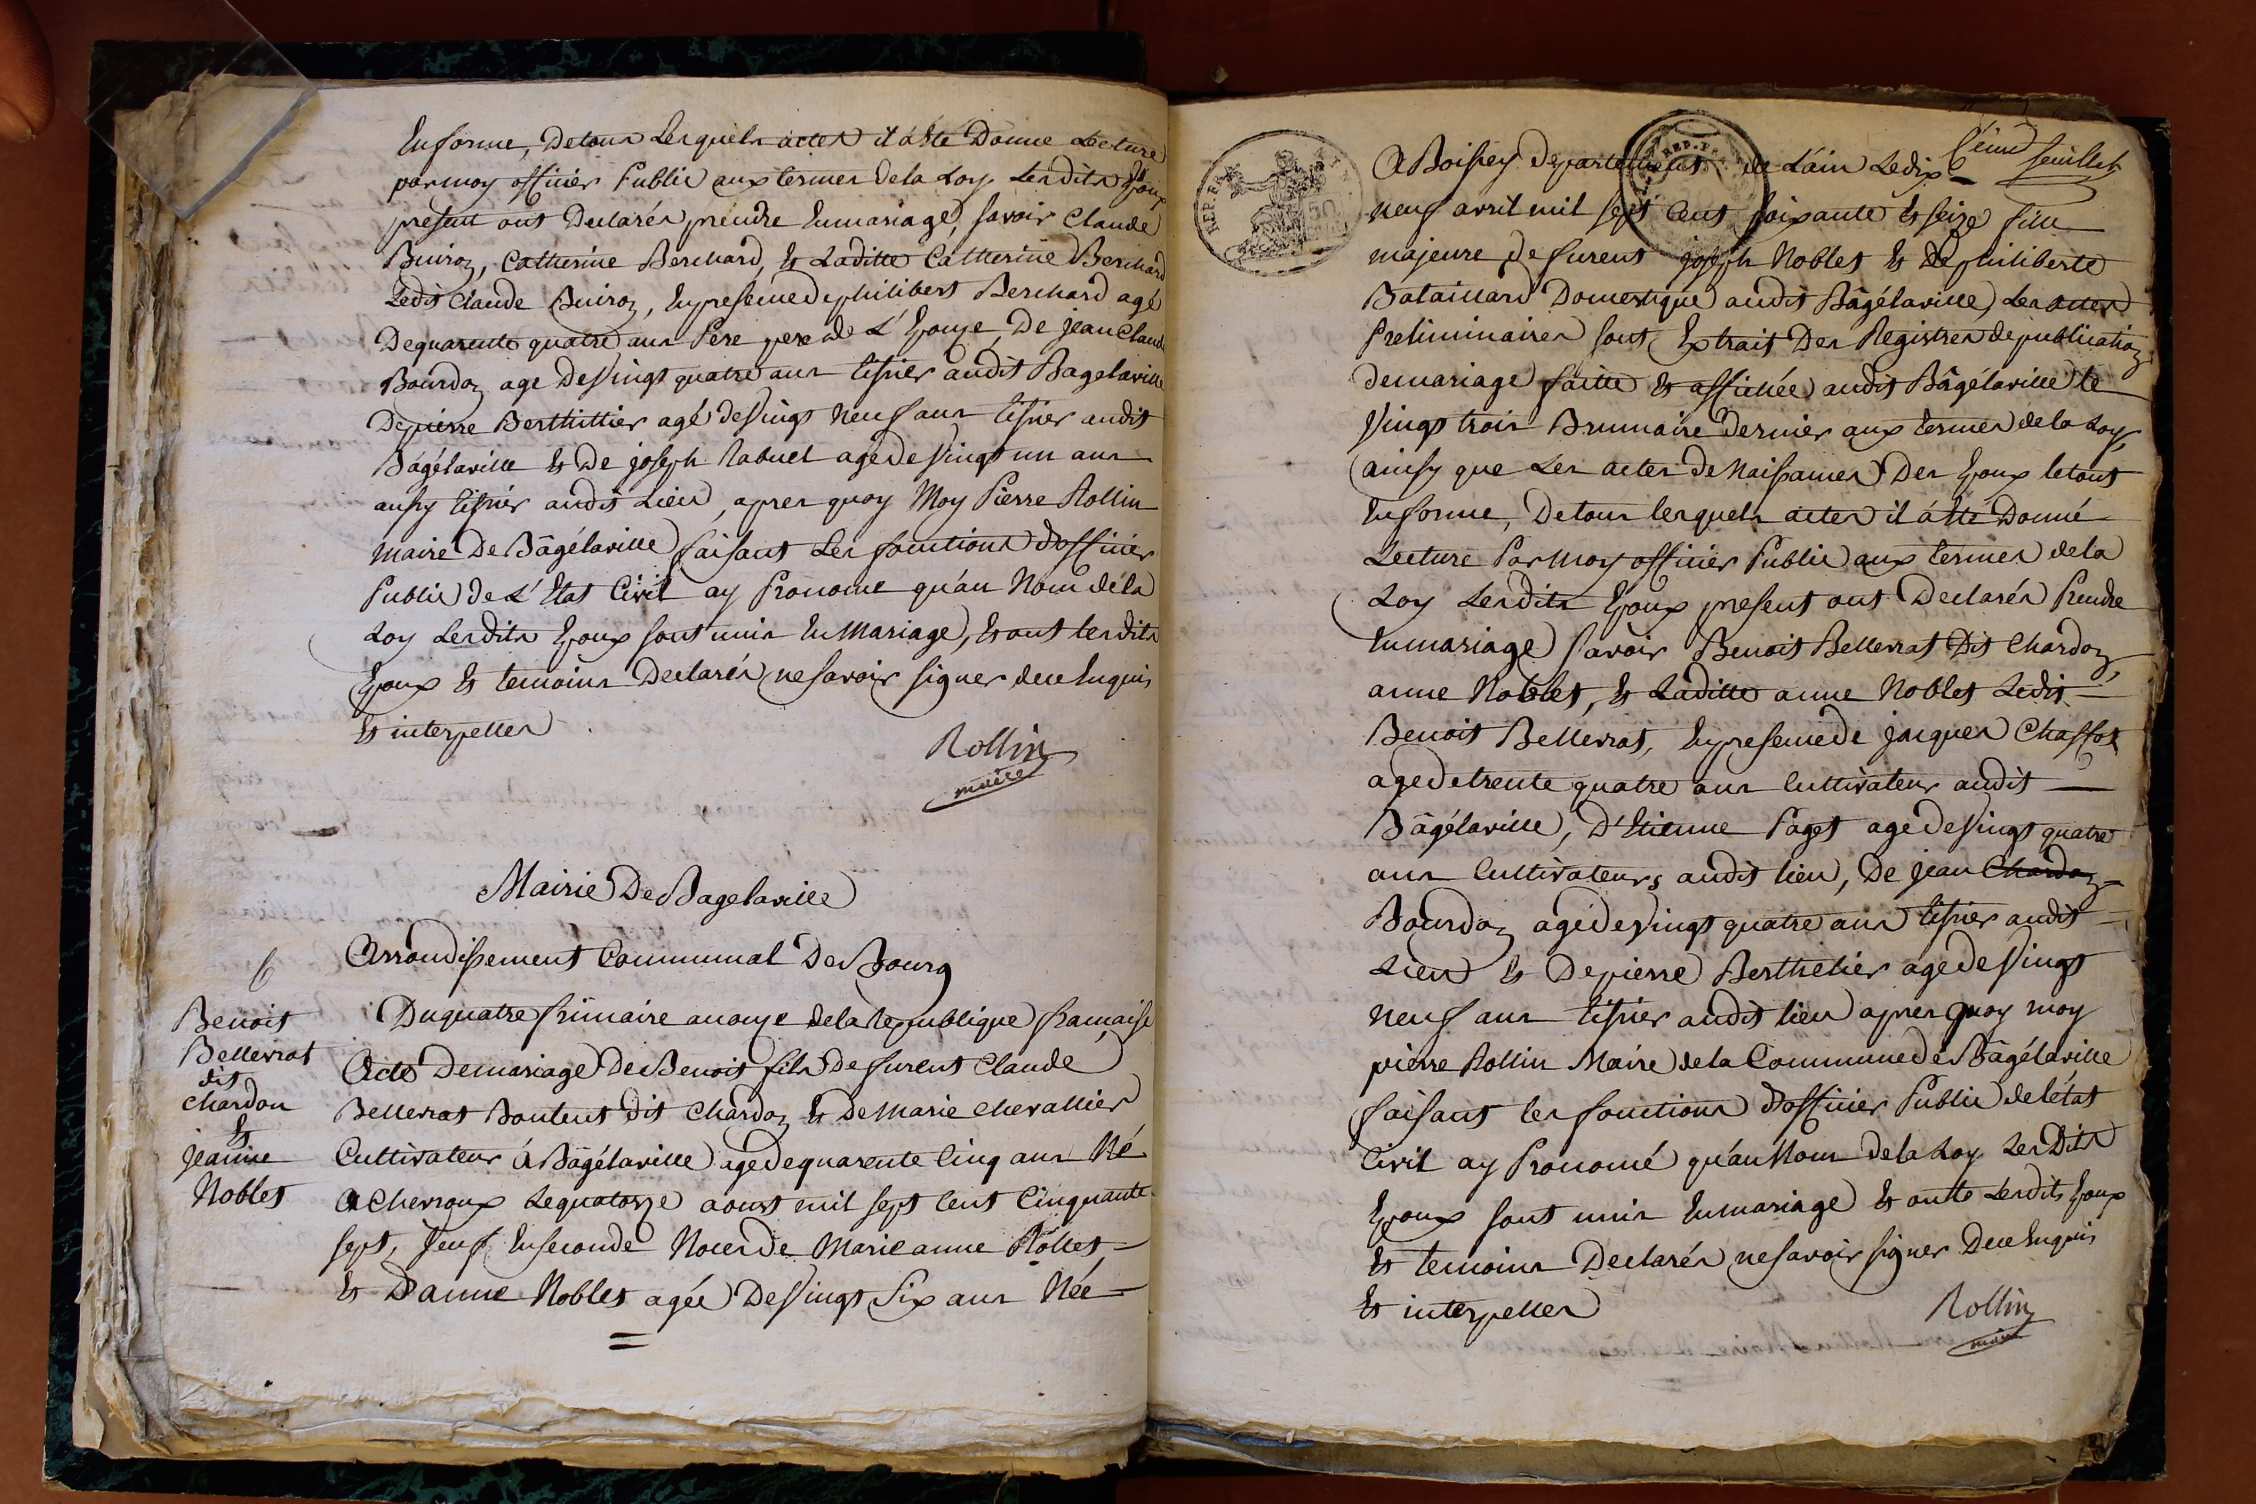 En forme, De tous Lesquels actes il a Eté Donné Lecture
par moy officier Public aux termes de la Loy. Lesdits Epoux
present ont Declarés prendre En mariage, savoir Claude
Buiron, Catherine Berchard, Et Laditte Catherine Berchard
Ledit Claude Buiron, En presence de philibert Berchard agé
De quarente quatre ans Pere pere de L'Epouse, De jean Claude
Bourdon age De Vingt quatre ans tisier audit Bagelaville
De pierre Berthillier agé de Vingt Neuf ans tisier audit
Bâgélaville Et De joseph Rabuel age de Vingt un ans
ausy tisier audit Lieu, apres quoy Moy Pierre Rollin
maire De Bâgélaville faisant Les fonctions d'officier
Public de L'Etat Civil ay Prononcé qu'au Nom de la
Loy Lesdits Epoux sont unis En Mariage, Et ont lesdits
Epoux Et temoins Declarés ne savoir signer de ce Enquis
Et interpellés
Rollin
maire
Mairie De Bagelaville
Arrondissement Communal De Bourg
6
Benoit
Bellevrat
dit
chardon
Et
jeanne
Nobles
Du quatre frimaire an onze de la Republique francaise
Acte De mariage De Benoit fils De furent Claude
Bellevrat Boutent dit Chardon Et De Marie chevallier
Cultivateur á Bâgélaville age de quarente Cinq ans Né
a Chevroux Le quatorze aoust mil sept Cent Cinquante
sept, Veuf En seconde Noces de Marie anne Rollet
Et D'anne Nobles agée De Vingt Six ans Née
6eme feuillet
REP. FRA.
50
REP. FRA.
A Boissey departement de L'ain Le dix
neuf avril mil sept Cent soixante Et seize fille
majeure de furent joseph Nobles Et De philiberte
Bataillard Domestique audit Bâgélaville, Les actes
Preliminaires sont Extrait Des Registres de publication
de mariage faitte Et affichée audit Bâgélaville le
Vingt trois Brumaire Dernier aux termes de la Loy,
ainsy que Les actes de Naissances Des Epoux le tout
En forme, De tous lesquels actes il a Eté Donné
Lecture Par moy officier Public aux termes de la
Loy Lesdits Epoux present ont Declarés Prendre
En mariage savoir Benoit Bellevrat Dit Chardon
anne Nobles, Et Laditte anne Nobles Ledit
Benoit Bellevrat, En presence de jacques Chaffot
age de trente quatre ans Cultivateur audit
Bâgélaville, D'Etienne Paget age de Vingt quatre
ans Cultivateurs audit lieu, De jean Chardon
Bourdon agé de Vingt quatre ans tisier audit
Lieu Et De pierre Berthelier age de Vingt
neuf ans tisier audit lieu apres quoy moy
pierre Rollin Maire de la Commune de Bâgélaville
faisant les fonctions d'officier Public de l'état
Civil ay Prononcé qu'au Nom de la Loy Les Dits
Epoux sont unis En mariage Et ontte Lesdits Epoux
Et temoins Declarés ne savoir signer De ce Enquis
Et interpellés
Rollin
maire